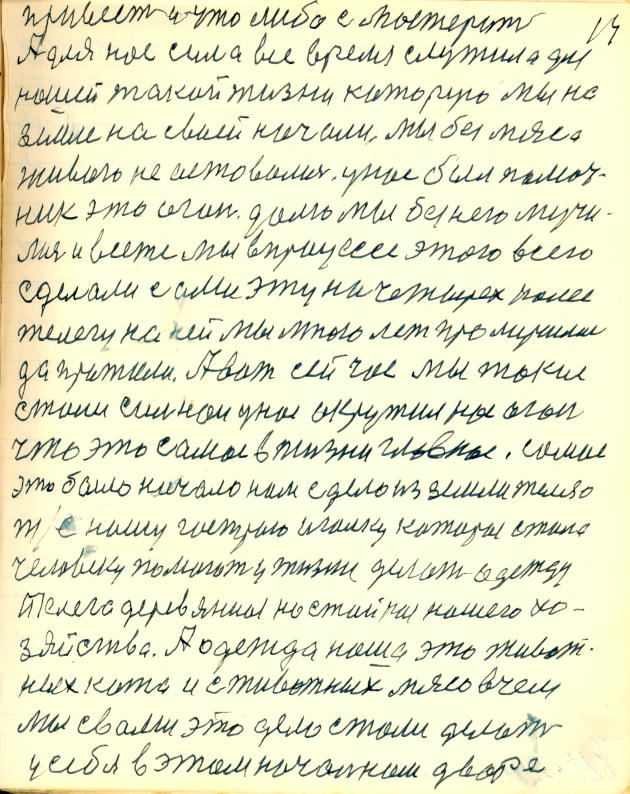 привест и что либо с мостерит 17
А для нас сила все время служила для
нашей такой жизни которую мы на
земле на своей начали. мы без мяса
живого не астовалися. у нас был помоч-
ник это огон. долго мы без него мучи-
лися и всеже мы в процессе этого всего
сделали сами эту на четырех колес
телегу на ней мы много лет
да прожили. А вот сей час мы такие
стали силнои у нас окружил нас огон
что это самое в жизни главное. самое
это было начало нам сдело из земли желяз
т/е нашу гострою иголку которое стала
человеку помогат у жизни делат одежду
Телега деревяные настойное нашего хо-
зяйства. А одежда наша это живот-
ных кожа и с животных мясо в чем
мы с вами это дело стали делат
у себя в этом началном дворе